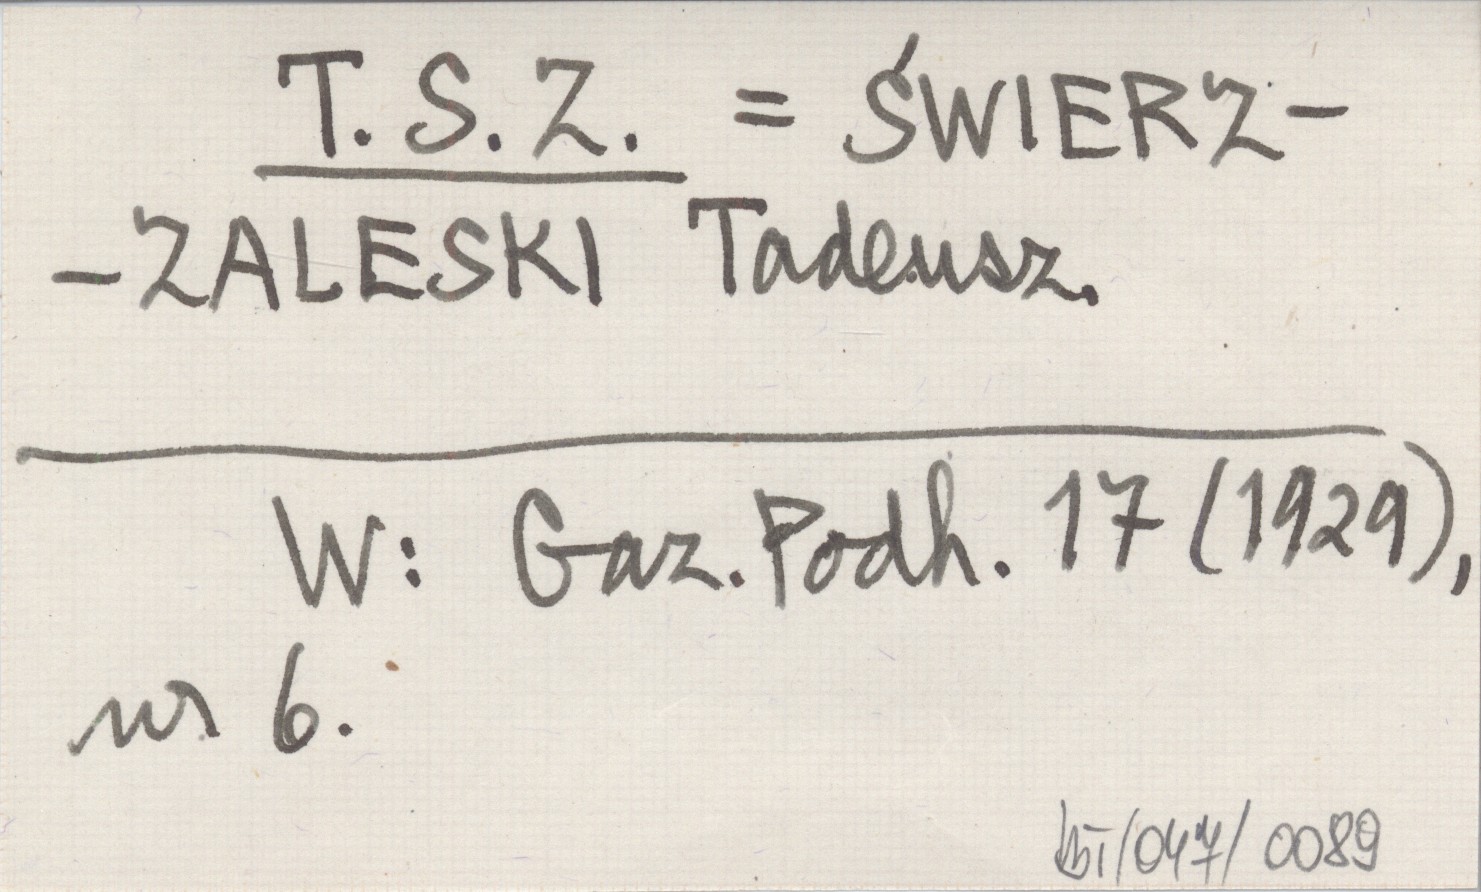 T. S. Z. = ŚWIERZ-
-ZALESKI Tadeusz.
W: Gaz. Podh. 17 (1929),
nr 6.
/047/ 0089